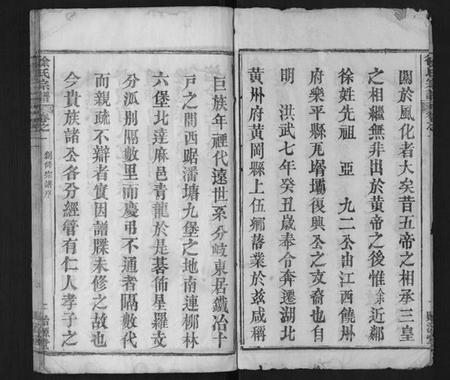 關於風化者大矣昔五帝之相承三皇
之相繼無非出於黃帝之後惟徐近鄰
徐姓先祖 亞 九二公由江西饒州
府樂平縣瓦壻壩復興公之支裔也自
明 洪武七年癸丑歲奉合奔遷湖北
黃州府黃岡縣上伍鄉落業於茲咸稱
徐氏宗譜
卷之
創修宗譜序
巨族年禋代遠世系分岐東居鐵冶十
戸之間西踞潘塘九堡之地南連柳林
六堡北達麻邑青龍於是碁佈星羅支
分派別隔數里而慶弔不通者隔數代
而親疏不辯者實因譜牒未修之故也
今貴族諸公各分經管有仁人孝子之